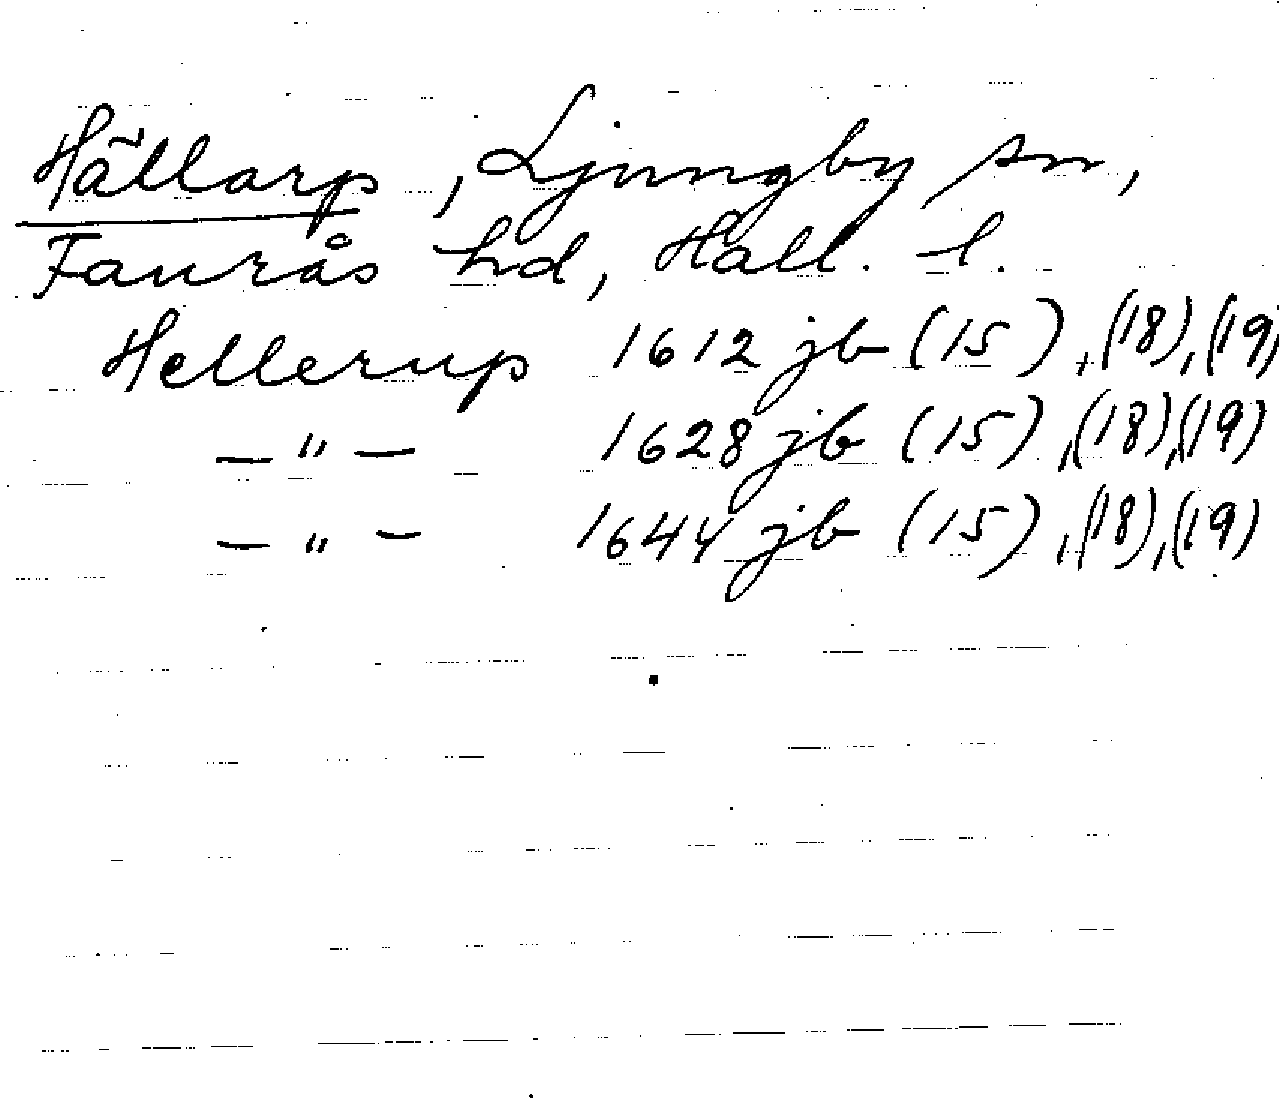 Hällarp, Ljungby sn,
Faurås hd, Hall. l.
Hellerup 1612 jb (15), (18), (19)
—"— 1628 jb (15), (18), (19)
—"— 1644 jb (15), (18), (19)